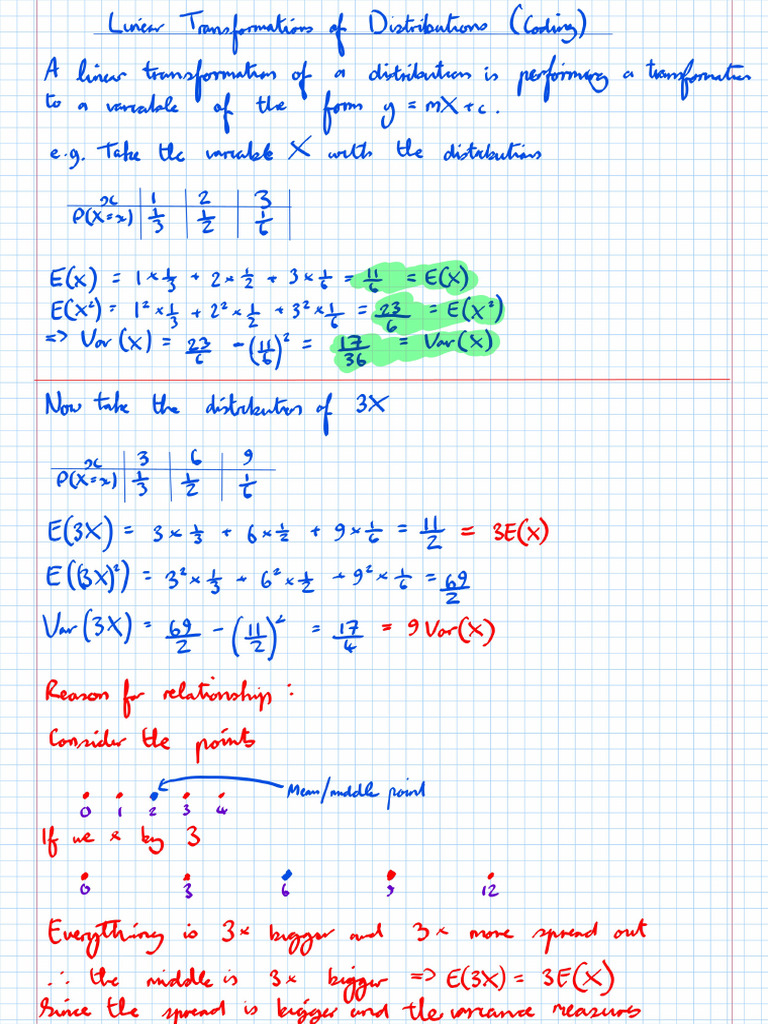 Linear Transformations of Distributions (Coding)
A linear transformation of a distribution is performing a transformation
to a variable of the form y = mX + c.
e.g. Take the variable X with the distribution
x | 1 | 2 | 3
P(X=x) | 1/3 | 1/2 | 1/6
E(X) = 1 × 1/3 + 2 × 1/2 + 3 × 1/6 = 11/6 = E(X)
E(X²) = 1² × 1/3 + 2² × 1/2 + 3² × 1/6 = 23/6 = E(X²)
=> Var(X) = 23/6 - (11/6)² = 17/36 = Var(X)
Now take the distribution of 3X
x | 3 | 6 | 9
P(X=x) | 1/3 | 1/2 | 1/6
E(3X) = 3 × 1/3 + 6 × 1/2 + 9 × 1/6 = 11/2 = 3E(X)
E((3X)²) = 3² × 1/3 + 6² × 1/2 + 9² × 1/6 = 69/2
Var(3X) = 69/2 - (11/2)² = 17/4 = 9Var(X)
Reason for relationship:
Consider the points
Mean/middle point
0 1 2 3 4
If we × by 3
0 3 6 9 12
Everything is 3× bigger and 3× more spread out
∴ the middle is 3× bigger => E(3X) = 3E(X)
Since the spread is bigger and the variance measures